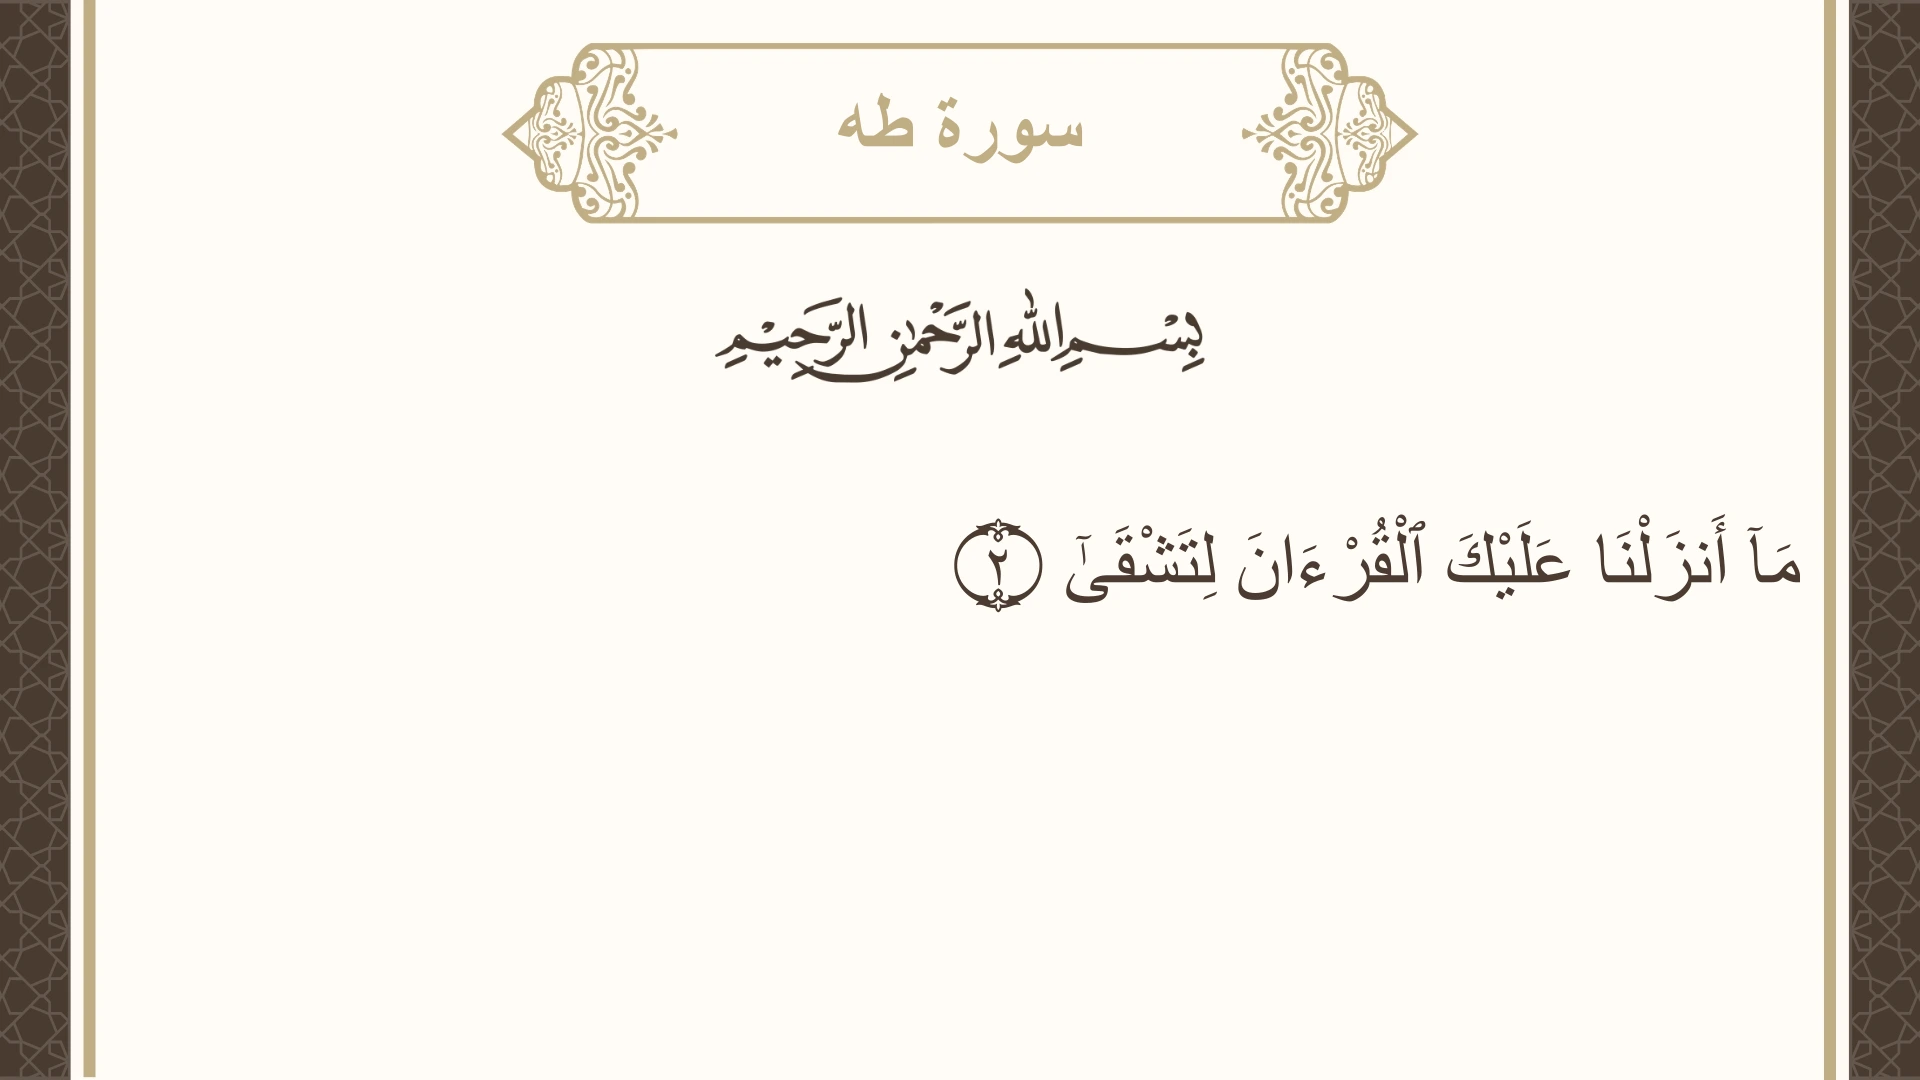 سورة طه
بِسْمِ اللهِ الرَّحْمٰنِ الرَّحِيْمِ
مَآ أَنزَلْنَا عَلَيْكَ ٱلْقُرْءَانَ لِتَشْقَىٰٓ ٢